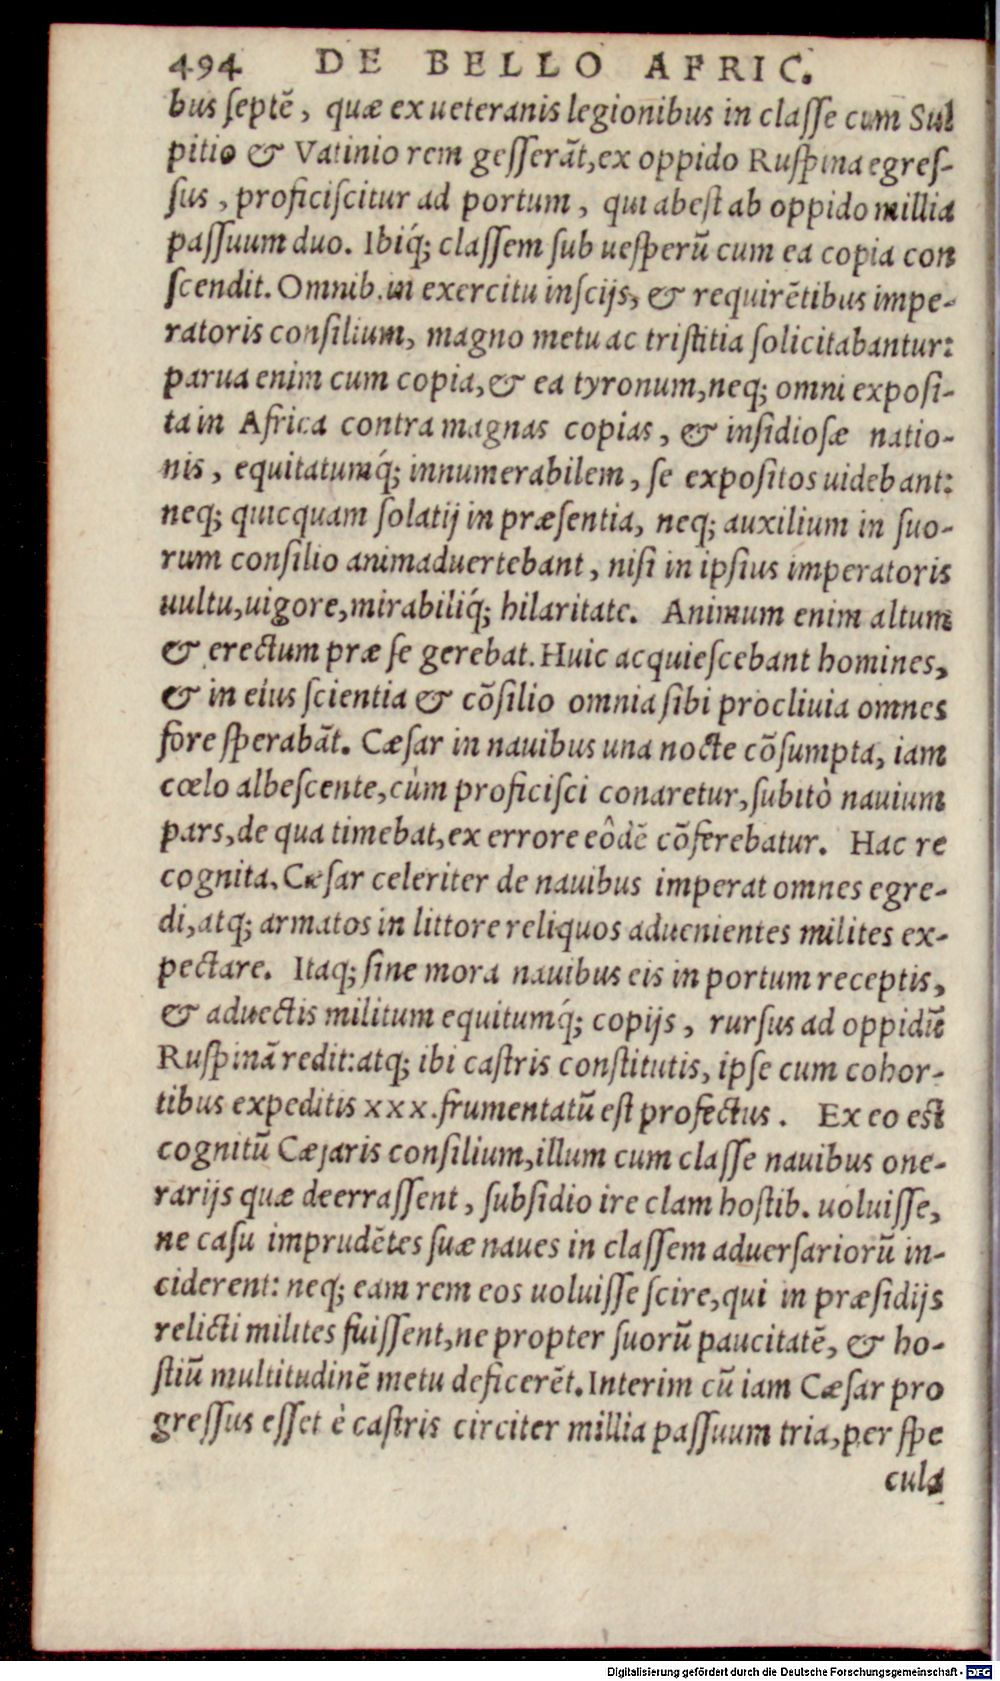 494 DE BELLO AFRIC.
bus ſeptē, quæ ex ueteranis legionibus in claſſe cum Sul
pitio & Vatinio rem geſſerāt, ex oppido Ruſpina egreſ-
ſus, proficiſcitur ad portum, qui abeſt ab oppido millia
paſſuum duo. Ibiq́; claſſem ſub ueſperū cum ea copia con
ſcendit. Omnib. in exercitu inſcijs, & requirētibus impe-
ratoris conſilium, magno metu ac triſtitia ſolicitabantur:
parua enim cum copia, & ea tyronum, neq; omni expoſi-
ta in Africa contra magnas copias, & inſidioſæ natio-
nis, equitatumq́; innumerabilem, ſe expoſitos uidebant:
neq; quicquam ſolatij in præſentia, neq; auxilium in ſuo-
rum conſilio animaduertebant, niſi in ipſius imperatoris
uultu, uigore, mirabiliq́; hilaritate. Animum enim altum
& erectum præ ſe gerebat. Huic acquieſcebant homines,
& in eius ſcientia & cōſilio omnia ſibi procliuia omnes
fore ſperabāt. Cæſar in nauibus una nocte cōſumpta, iam
cœlo albeſcente, cùm proficiſci conaretur, ſubitò nauium
pars, de qua timebat, ex errore eôdē cōferebatur. Hac re
cognita, Cæſar celeriter de nauibus imperat omnes egre-
di, atq; armatos in littore reliquos aduenientes milites ex-
pectare. Itaq; ſine mora nauibus eis in portum receptis,
& aduectis militum equitumq́; copijs, rurſus ad oppidū
Ruſpinā redit: atq; ibi caſtris conſtitutis, ipſe cum cohor-
tibus expeditis xxx. frumentatū eſt profectus. Ex eo eſt
cognitū Cæſaris conſilium, illum cum claſſe nauibus one-
rarijs quæ deerraſſent, ſubſidio ire clam hoſtib. uoluiſſe,
ne caſu imprudētes ſuæ naues in claſſem aduerſariorū in-
ciderent: neq; eam rem eos uoluiſſe ſcire, qui in præſidijs
relicti milites fuiſſent, ne propter ſuorū paucitatē, & ho-
ſtiū multitudinē metu deficerēt. Interim cū iam Cæſar pro
greſſus eſſet è caſtris circiter millia paſſuum tria, per ſpe
cula
Digitalisierung gefördert durch die Deutsche Forschungsgemeinschaft - DFG